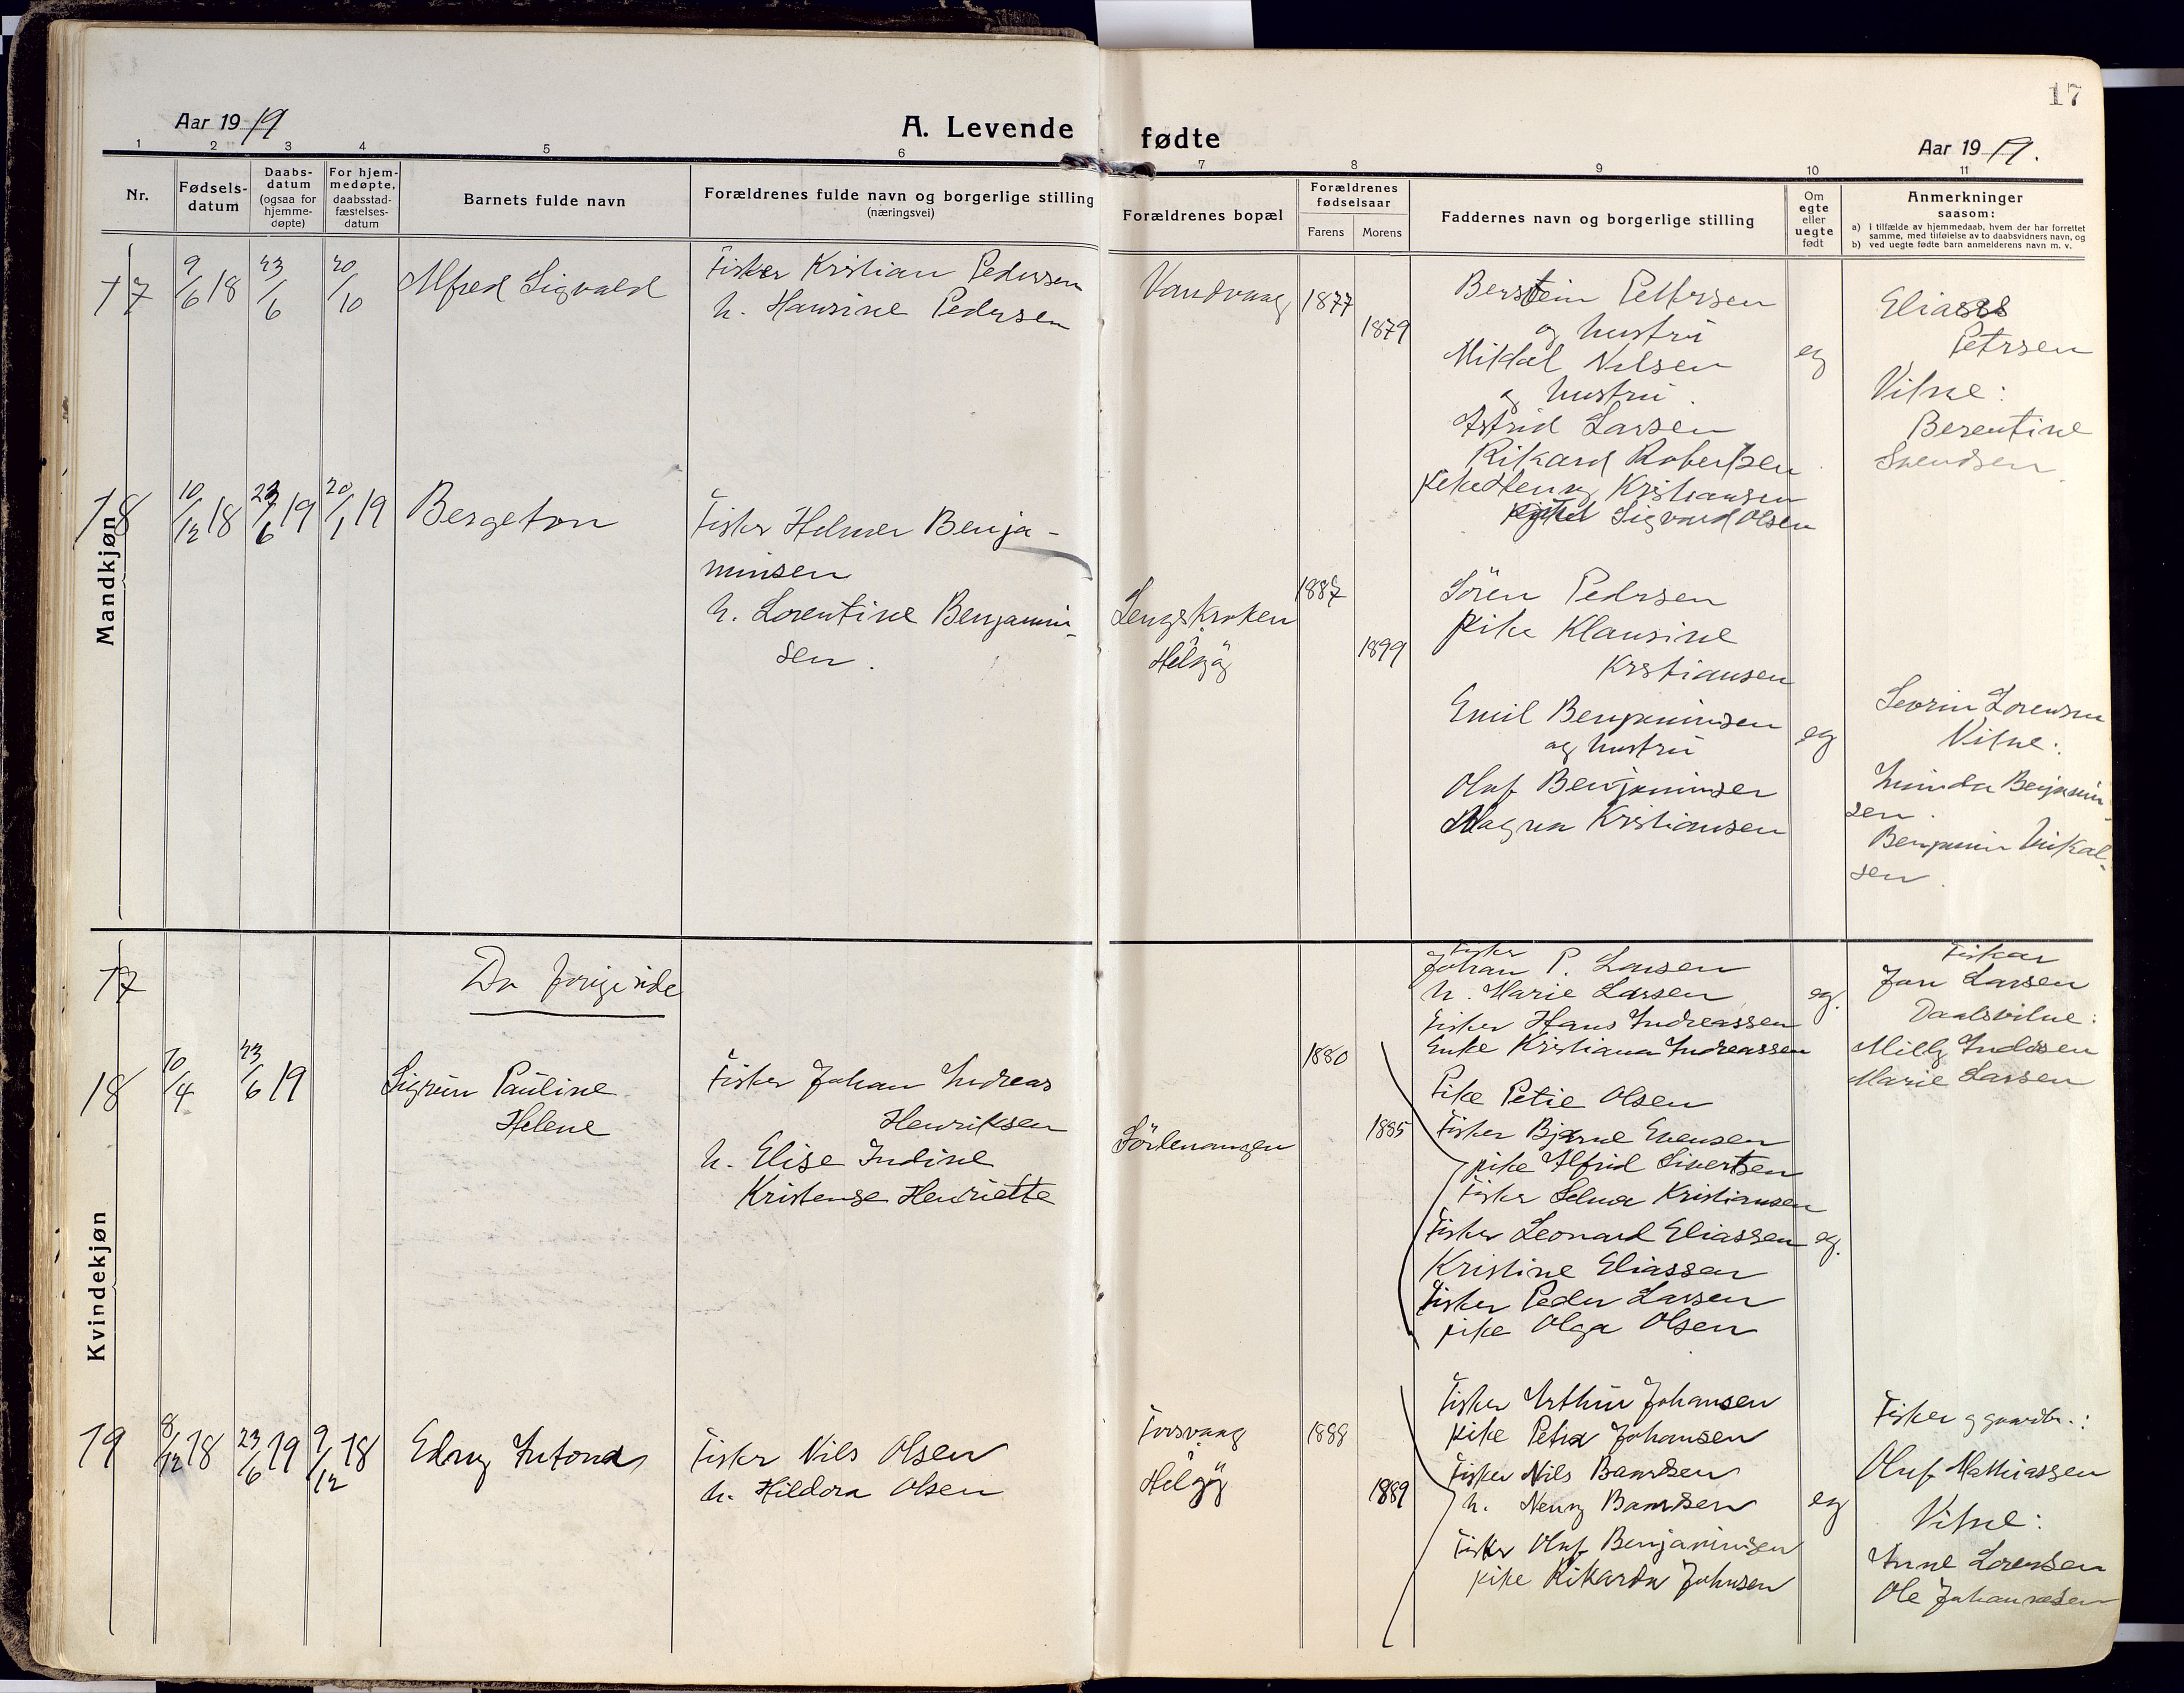 17
Aar 1919
A. Levende fødte
Aar 1919.
1 2 3 4 5 6 7 8 9 10 11
Nr.
Fødsels-
datum
Daabs-
datum
(ogsaa for
hjemme-
døpte)
For hjem-
medøpte,
daabsstad-
fæstelses-
datum
Barnets fulde navn
Forældrenes fulde navn og borgerlige stilling
(næringsvei)
Forældrenes bopæl
Forældrenes
fødselsaar
Farens Morens
Faddernes navn og borgerlige stilling
Om
egte
eller
uegte
født
Anmerkninger
saasom:
a) I tilfælde av hjemmedaab, hvem der har forrettet
samme, med tilføielse av to daabsvidners navn, og
b) ved uegte fødte barn anmelderens navn m. v.
Mandkjøn
17
9/6 18
23/6
20/10
Alfred Sigvald
Fisker Kristian Pedersen
h. Hansine Pedersen
Vandvaag
1877
1879
Berstein Pettersen
og hustru
Mikal Nilsen
og hustru
Astrid Larsen
Rikard Robertsen
pike Henny Kristiansen
Sigvard Olsen
eg
Elias
Petersen
Vitne:
Berentine
Svendsen
18
10/12 18
23/6 19
20/1 19
Bergeton
Fisker Helmer Benja-
minsen
h. Lorentine Benjamin-
sen.
Lengskroken
Helgöy
1887
1899
Sören Pedersen
pike Klausine
Kristiansen
Emil Benjaminsen
og hustru
Oluf Benjaminsen
Magna Kristiansen
eg
Sevrin Lorensen
Vitne:
Benjamin-
sen.
Benjamin Mikal-
sen.
Kvindekjøn
17
Se forige side
Fisker
Johan P. Larsen
h. Marie Larsen
Fisker Hans Andreassen
Enke Kristiana Andreassen
eg.
Fisker
Jan Larsen
Daabsvitne:
Milly Andersen
Marie Larsen
18
10/4
23/6 19
Sigrun Pauline
Helene
Fisker Johan Andreas
Henriksen
h. Elise Indine
Kristense Henriette
Sörlenangen
1880
1885
Pike Petie Olsen
Fisker Bjarne Evensen
pike Alfrid Sivertsen
Fisker Selmer Kristiansen
Fisker Leonard Eliassen
Kristine Eliassen
Fisker Peder Larsen
pike Olga Olsen
eg.
19
8/12 18
23/6 19
9/12 18
Edny Antona
Fisker Nils Olsen
h. Hildora Olsen
Torsvaag
Helgöy
1888
1889
Fisker Arthur Johansen
pike Petra Johansen
Fisker Nils Bamsen
h. Nenny Bamsen
Fisker Oluf Benjaminsen
pike Rikarda Johnsen
eg
Fisker og gaardbr.:
Oluf Mathiassen
Vitne:
Anne Lorensen
Ole Johannesen